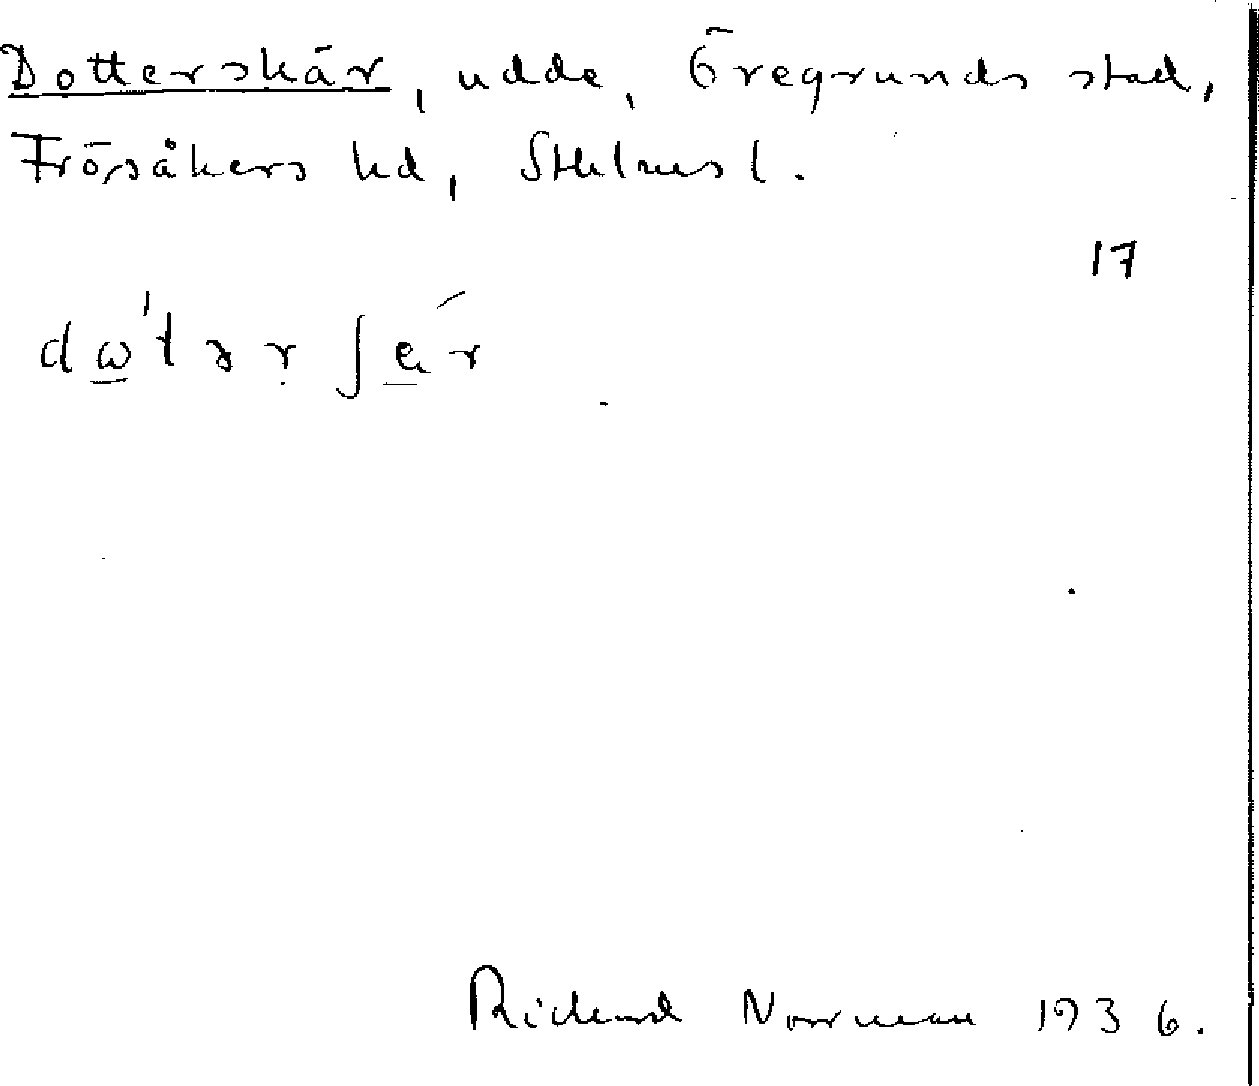 Dotterskär, udde, Öregrunds stad,
Frösåkers hd, Sthlms l.
17
dω̲'tər ʃe̲´r
Rickard Norrman 1936.